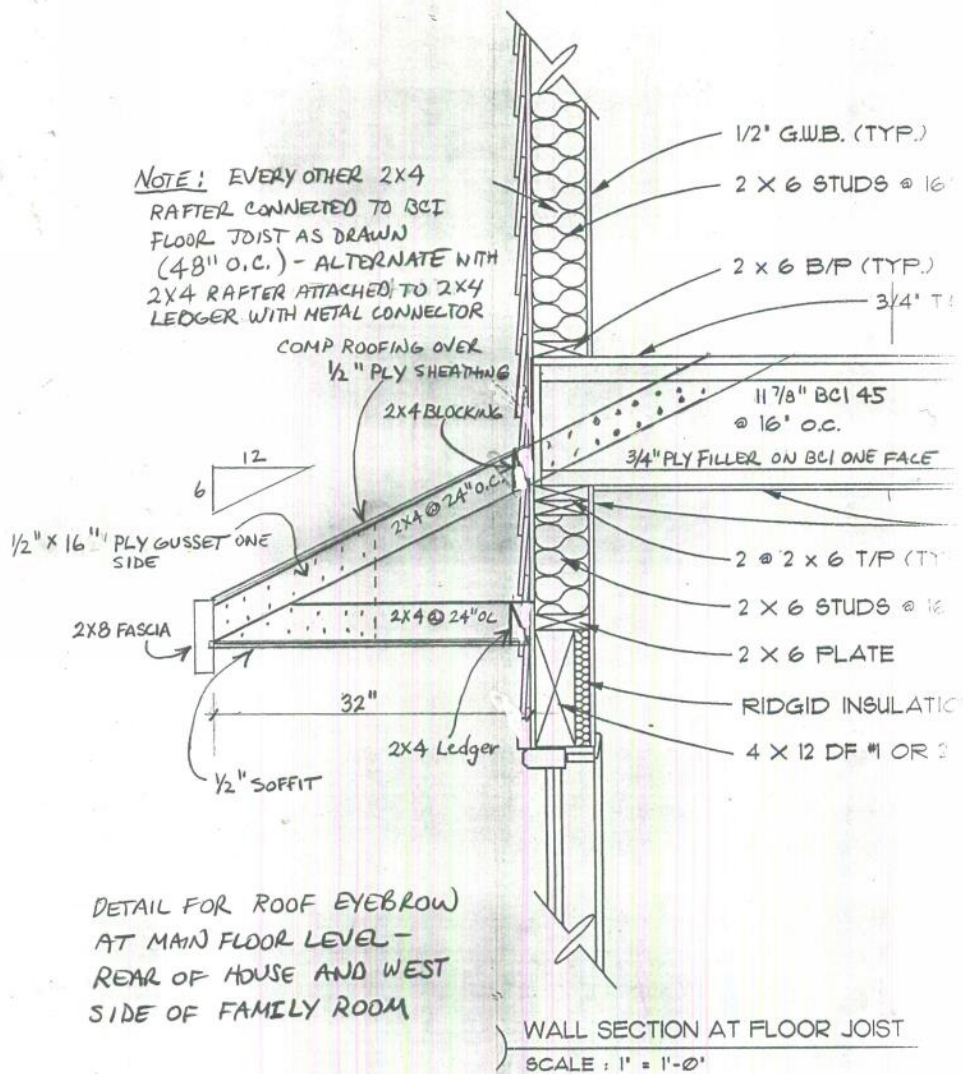 NOTE: EVERY OTHER 2X4
RAFTER CONNECTED TO BCI
FLOOR JOIST AS DRAWN
(48" O.C.) - ALTERNATE WITH
2X4 RAFTER ATTACHED TO 2X4
LEDGER WITH METAL CONNECTOR
COMP ROOFING OVER
1/2" PLY SHEATHING
2X4 BLOCKING
12
6
2X4 @ 24" O.C.
1/2" X 16" PLY GUSSET ONE
SIDE
2X8 FASCIA
2X4 @ 24" OC
32"
2X4 Ledger
1/2" SOFFIT
1/2" G.W.B. (TYP.)
2 X 6 STUDS @ 16"
2 x 6 B/P (TYP.)
3/4" T
11 7/8" BCI 45
@ 16" O.C.
3/4" PLY FILLER ON BCI ONE FACE
2 @ 2 x 6 T/P (TY
2 X 6 STUDS @ 16
2 X 6 PLATE
RIDGID INSULATIO
4 X 12 DF #1 OR
DETAIL FOR ROOF EYEBROW
AT MAIN FLOOR LEVEL -
REAR OF HOUSE AND WEST
SIDE OF FAMILY ROOM
WALL SECTION AT FLOOR JOIST
SCALE : 1" = 1'-0"